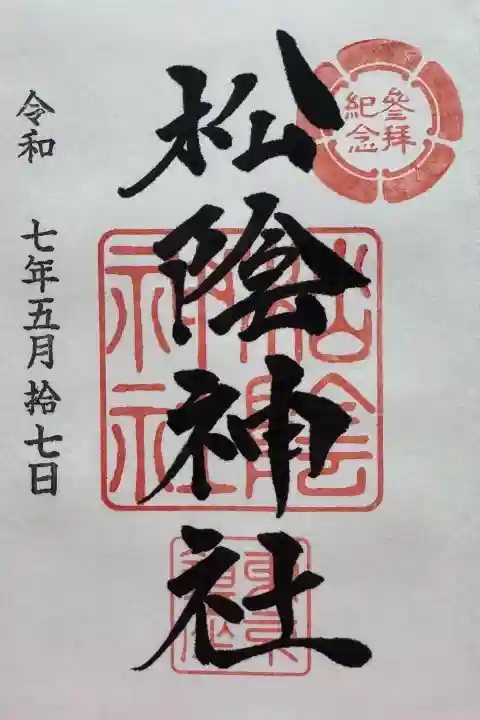 參拜
紀念
松陰神社
松陰
神社
令和 七年五月拾七日